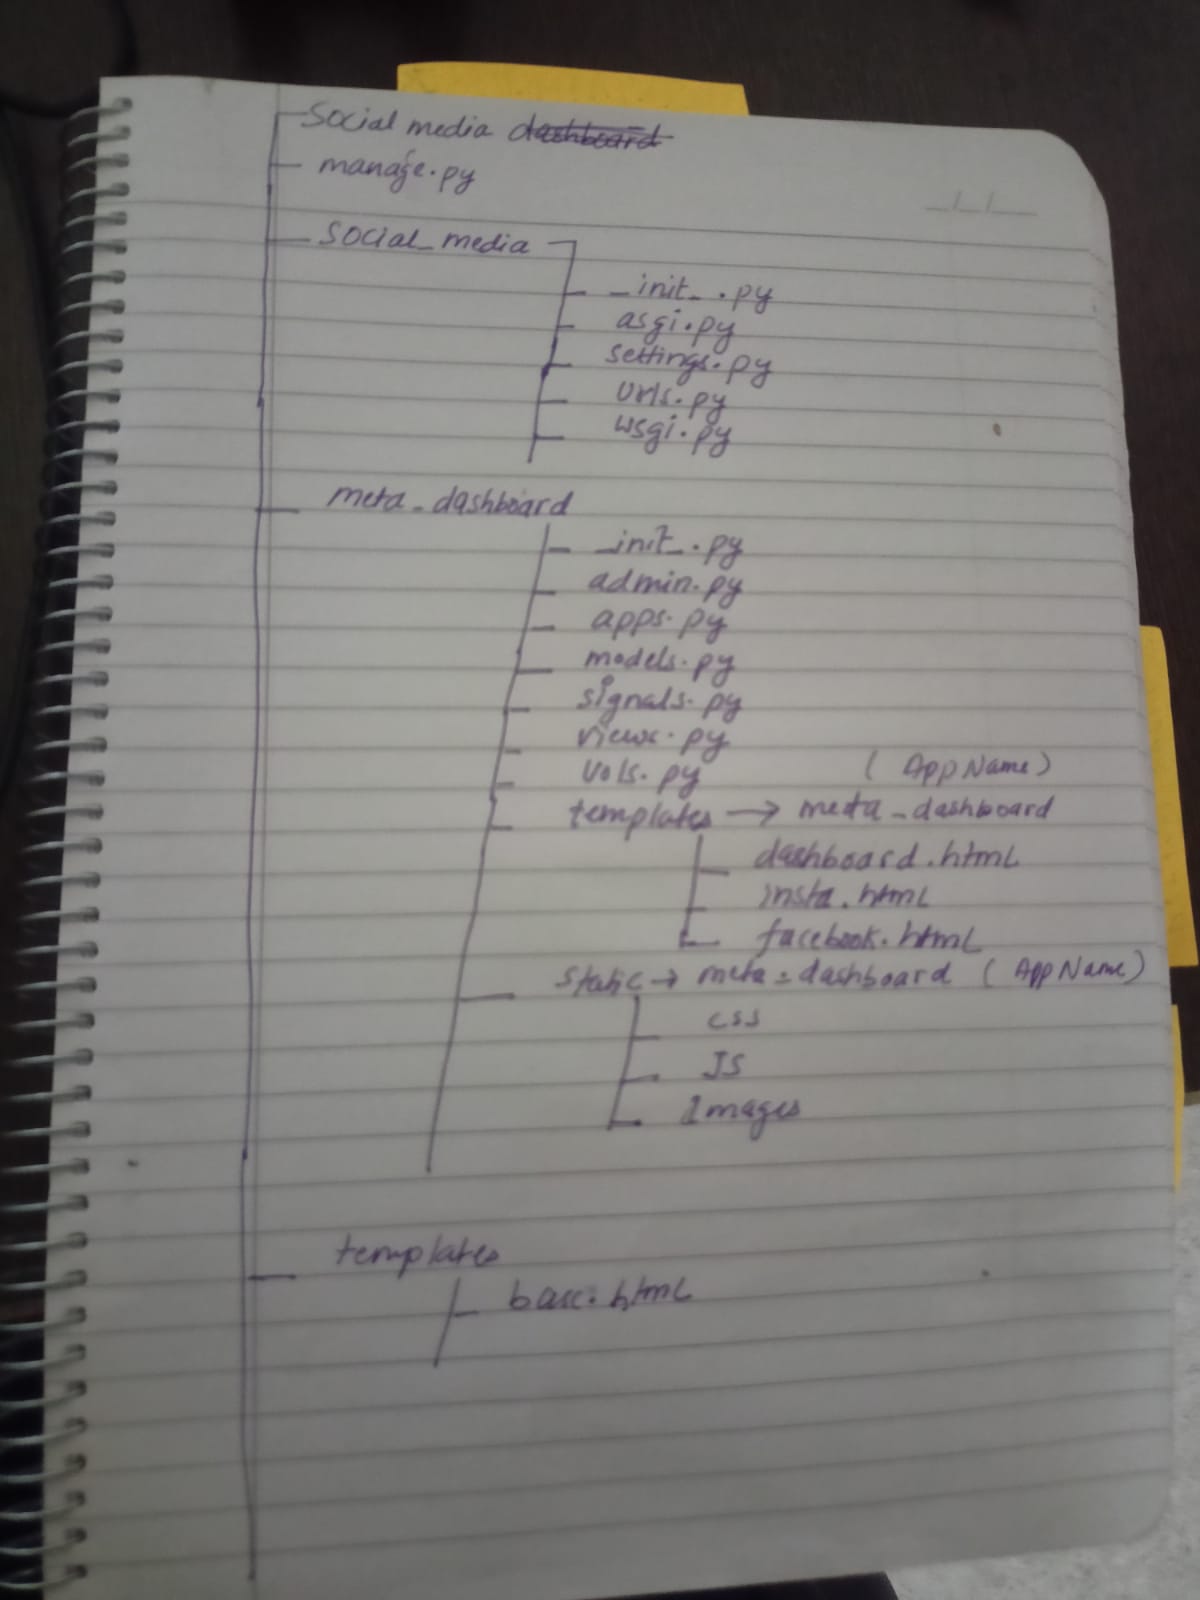 Social media dashboard
manage.py
social_media
_init_.py
asgi.py
settings.py
urls.py
wsgi.py
meta_dashboard
_init_.py
admin.py
apps.py
models.py
signals.py
views.py
urls.py
(AppName)
templates → meta_dashboard
dashboard.html
insta.html
facebook.html
static → meta_dashboard (AppName)
css
JS
Images
templates
base.html